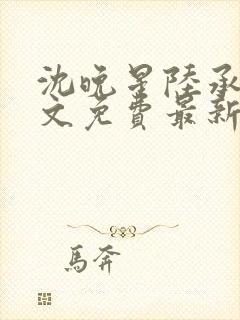 沈晚星陸承
文免費最新
馬奔